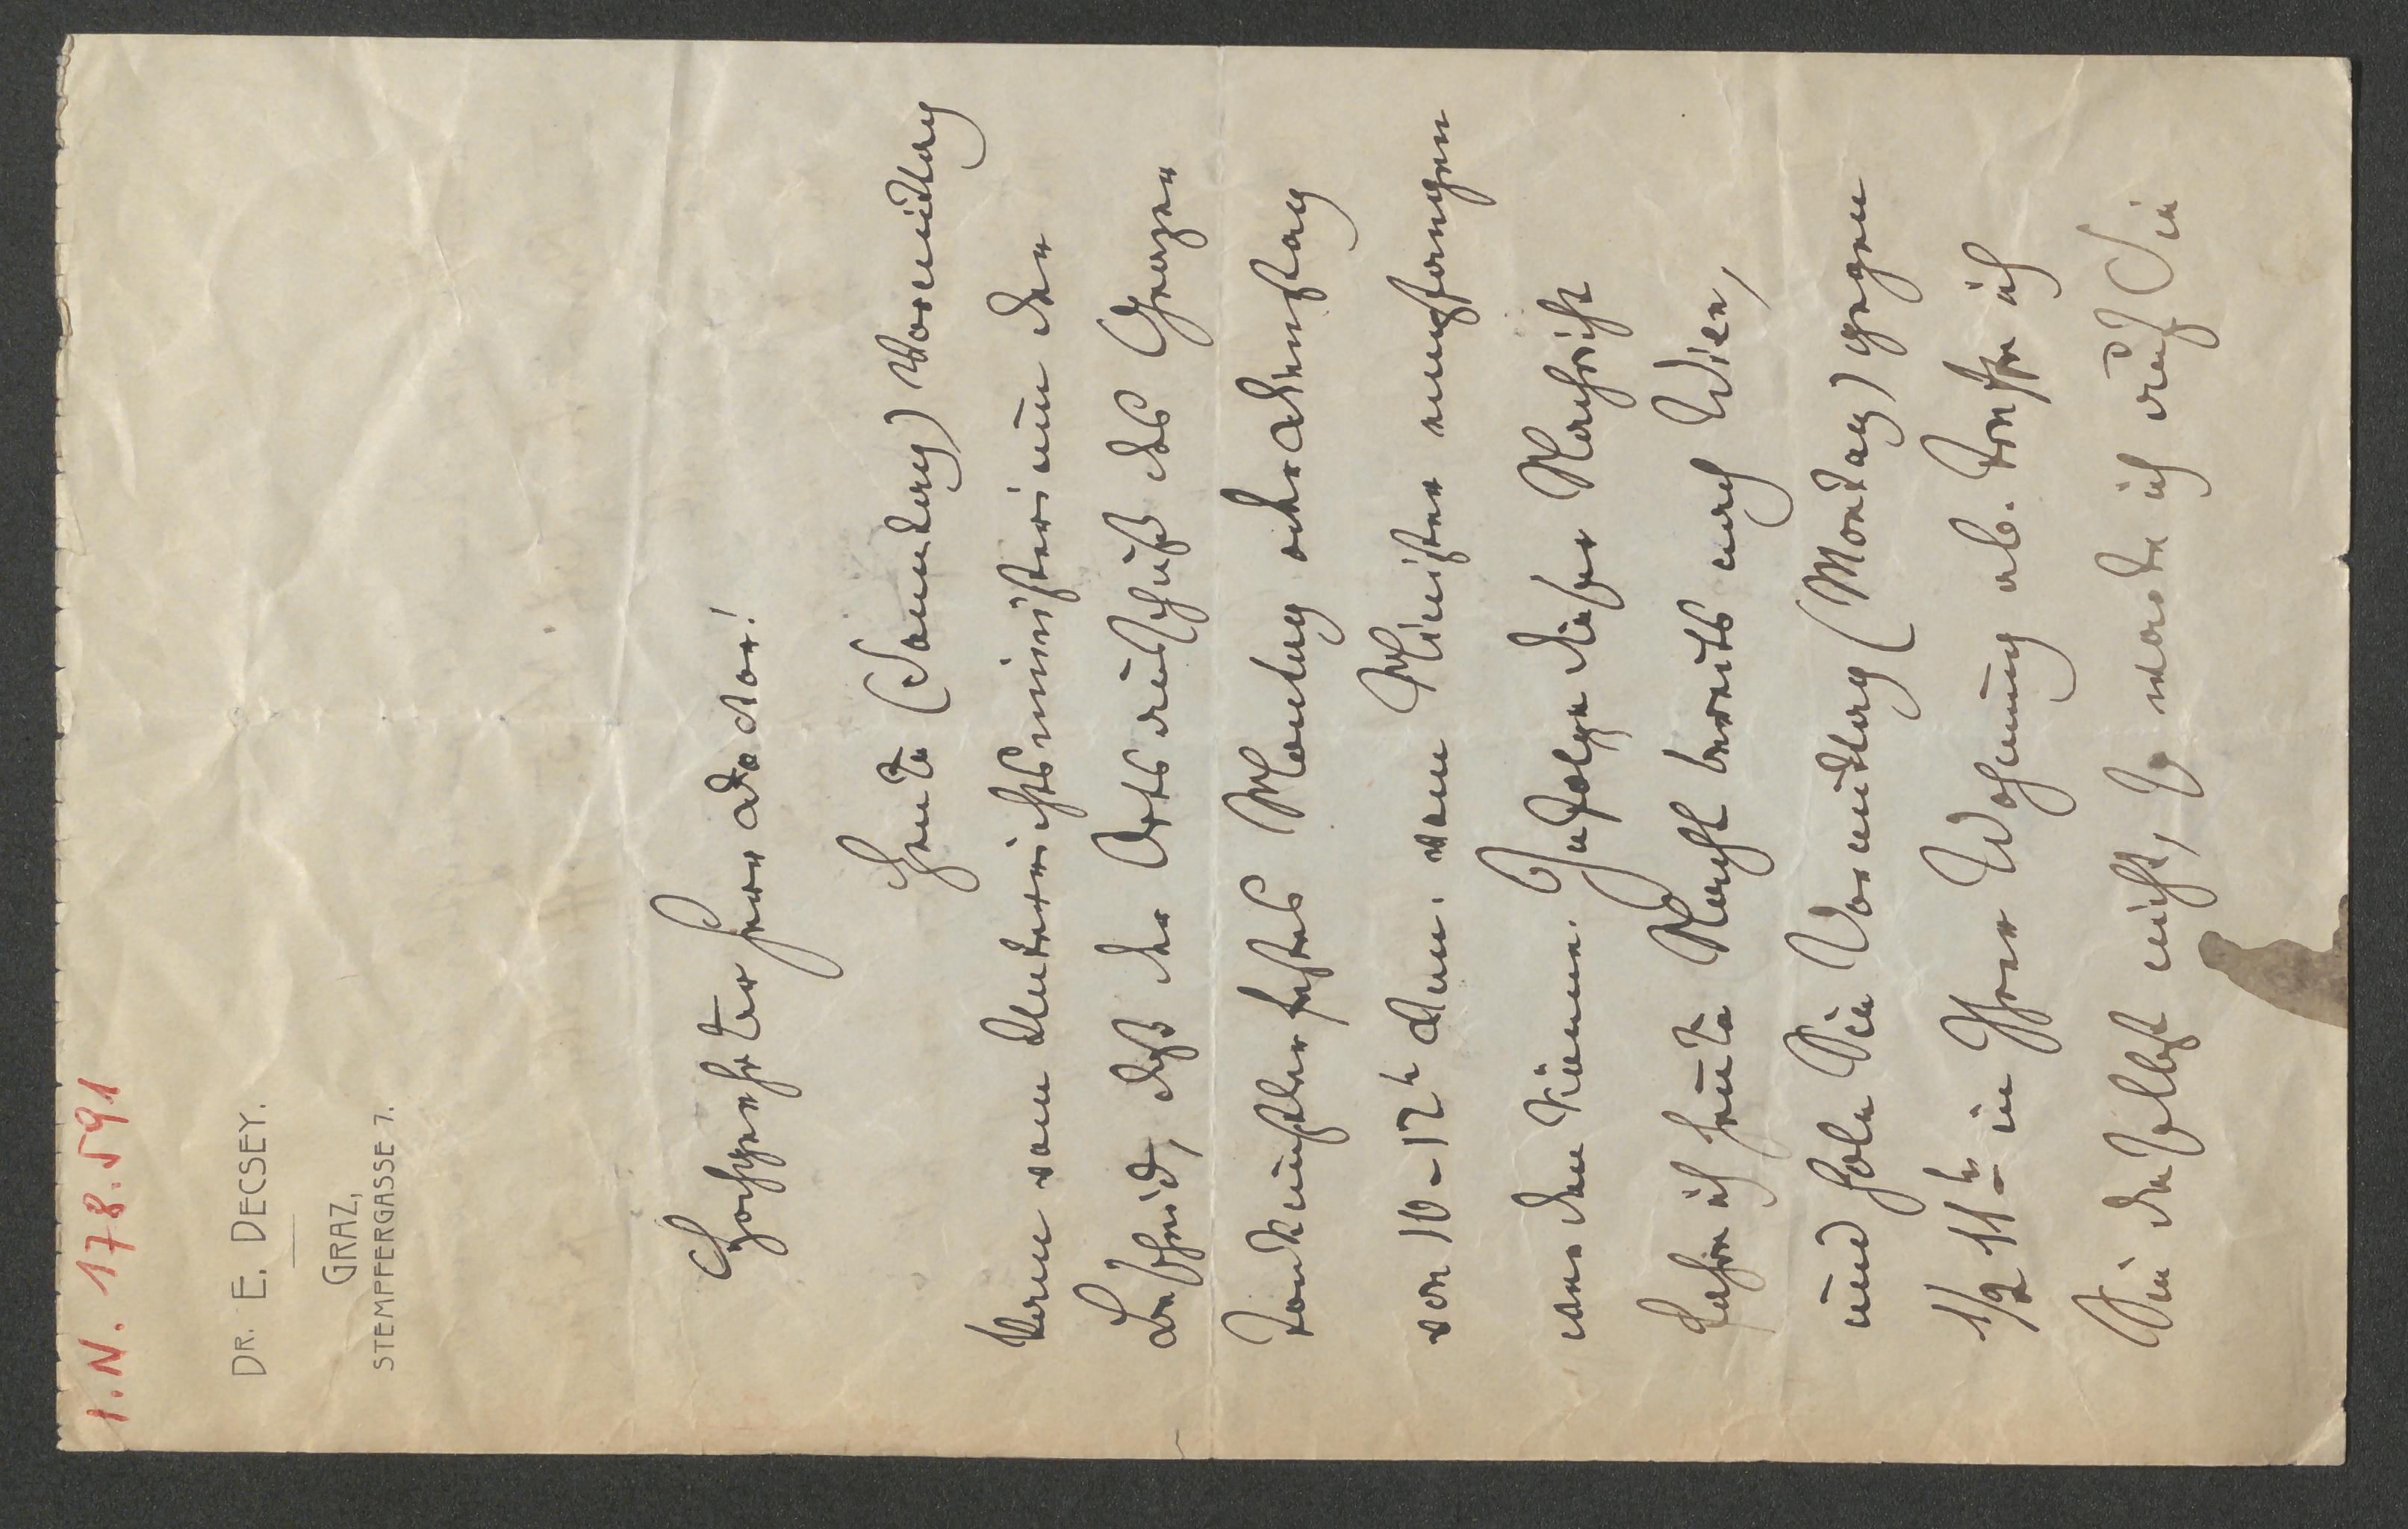 I. N. 178.591
DR. E. DECSEY.
GRAZ,
STEMPFERGASSE 7.
Hochgeehrter Herr Doctor!
Heute (Samstag) Vormittag
kam vom Unterrichtsministerium der
Bescheid, daß der Ortsausschuß des Grazer
Tonkünstlerfestes Montag oder Dienstag
von 10 - 12 h vom Minister empfangen
werden könne. Infolge dieser Nachricht
fahre ich heute Nacht bereits nach Wien,
und hole Sie Vormittag (Montag) gegen
1/2 11 h in Ihrer Wohnung ab. Treffe ich
Sie daselbst nicht, so warte ich auf Sie